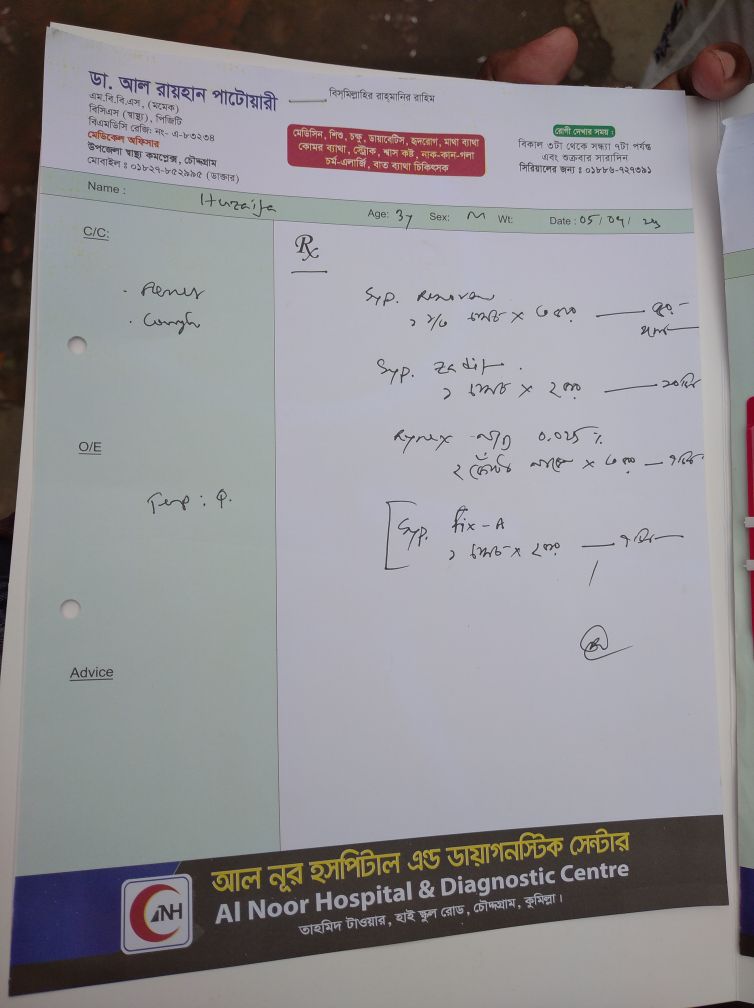 ডা. আল রায়হান পাটোয়ারী
এম.বি.বি.এস, (মমেক)
বিসিএস (স্বাস্থ্য), পিজিটি
বিএমডিসি রেজি: নং- এ-৮৩২৩৪
মেডিকেল অফিসার
উপজেলা স্বাস্থ্য কমপ্লেক্স, চৌদ্দগ্রাম
মোবাইল : ০১৮২৭-৮৫২৯৯৫ (ডাক্তার)
বিসমিল্লাহির রাহমানির রাহিম
মেডিসিন, শিশু, চক্ষু, ডায়াবেটিস, হৃদরোগ, মাথা ব্যাথা
কোমর ব্যাথা, স্ট্রোক, শ্বাস কষ্ট, নাক-কান-গলা
চর্ম-এলার্জি, বাত ব্যাথা চিকিৎসক
রোগী দেখার সময় :
বিকাল ৩টা থেকে সন্ধ্যা ৭টা পর্যন্ত
এবং শুক্রবার সারাদিন
সিরিয়ালের জন্য : ০১৮৮৬-৭২৭৩৯১
Name : Huzaifa Age: 3y Sex: M Wt: Date : 05/04/
C/C:
Rx
. Fever
. Cough
Syp.
চামচ × ৩
Syp. Zadit
১ চামচ × ২
O/E
Rynex 0.025 %
২ ফোঁটা × ৩
Temp :
Syp. Fix-A
১ চামচ × ২
Advice
আল নূর হসপিটাল এণ্ড ডায়াগনস্টিক সেন্টার
Al Noor Hospital & Diagnostic Centre
তাহমিদ টাওয়ার, হাই স্কুল রোড, চৌদ্দগ্রাম, কুমিল্লা।